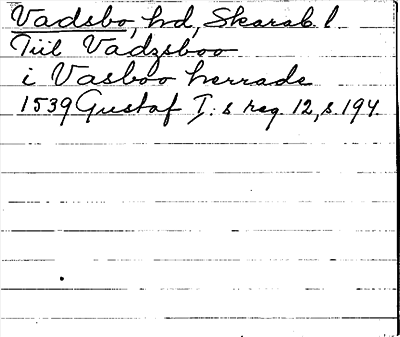 Vadsbo, hd, Skarab. l.
Tiil Vadzsboo
i Vasboo herrade
1539 Gustaf I:s reg. 12, s. 194.